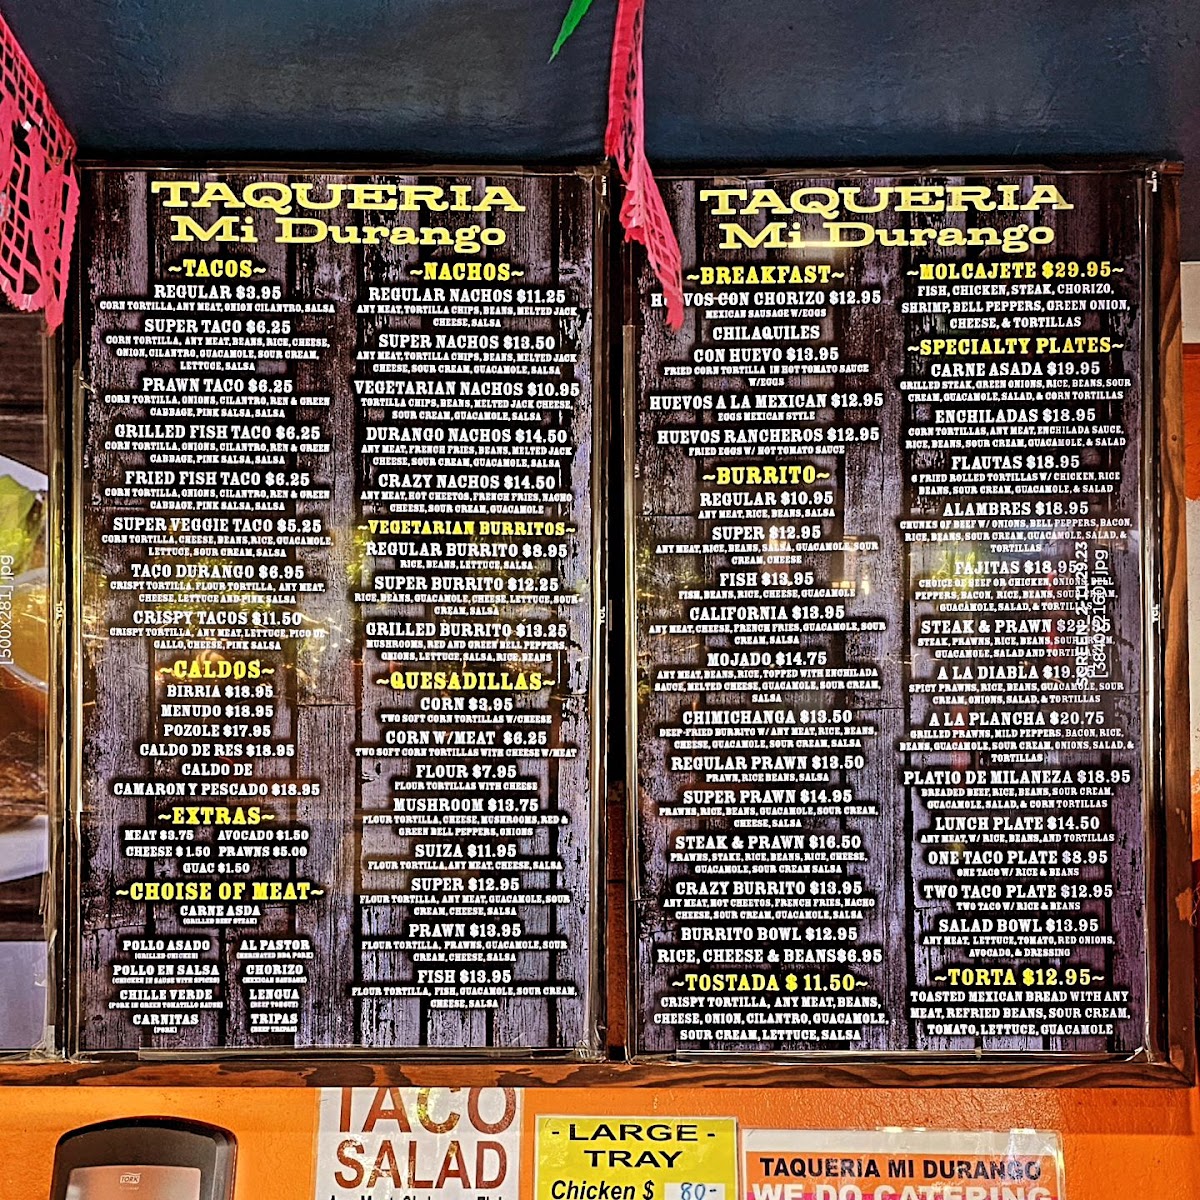 TAQUERIA
Mi Durango
~TACOS~
REGULAR $3.95
CORN TORTILLA, ANY MEAT, ONION CILANTRO, SALSA
SUPER TACO $6.25
CORN TORTILLA, ANY MEAT, BEANS, RICE, CHEESE,
ONION, CILANTRO, GUACAMOLE, SOUR CREAM,
LETTUCE, SALSA
PRAWN TACO $6.25
CORN TORTILLA, ONIONS, CILANTRO, REN & GREEN
CABBAGE, PINK SALSA, SALSA
GRILLED FISH TACO $6.25
CORN TORTILLA, ONIONS, CILANTRO, REN & GREEN
CABBAGE, PINK SALSA, SALSA
FRIED FISH TACO $6.25
CORN TORTILLA, ONIONS, CILANTRO, REN & GREEN
CABBAGE, PINK SALSA, SALSA
SUPER VEGGIE TACO $5.25
CORN TORTILLA, CHEESE, BEANS, RICE, GUACAMOLE,
LETTUCE, SOUR CREAM, SALSA
TACO DURANGO $6.95
CRISPY TORTILLA, FLOUR TORTILLA, ANY MEAT,
CHEESE, LETTUCE AND PINK SALSA
CRISPY TACOS $11.50
CRISPY TORTILLA, ANY MEAT, LETTUCE, PICO DE
GALLO, CHEESE, PINK SALSA
~CALDOS~
BIRRIA $18.95
MENUDO $18.95
POZOLE $17.95
CALDO DE RES $18.95
CALDO DE
CAMARON Y PESCADO $18.95
~EXTRAS~
MEAT $3.75 AVOCADO $1.50
CHEESE $ 1.50 PRAWNS $5.00
GUAC $1.50
~CHOISE OF MEAT~
CARNE ASDA
(GRILLED BEEF STEAK)
POLLO ASADO
(GRILLED CHICKEN)
POLLO EN SALSA
(CHICKEN IN SAUCE WITH SPICES)
CHILLE VERDE
(PORK IN GREEN TOMATILLO SAUCE)
CARNITAS
(PORK)
AL PASTOR
(MERINATED BBQ PORK)
CHORIZO
(MEXICAN SAUSAGE)
LENGUA
(BEEF TONGUE)
TRIPAS
(BEEF TRIPAS)
~NACHOS~
REGULAR NACHOS $11.25
ANY MEAT, TORTILLA CHIPS, BEANS, MELTED JACK
CHEESE, SALSA
SUPER NACHOS $13.50
ANY MEAT, TORTILLA CHIPS, BEANS, MELTED JACK
CHEESE, SOUR CREAM, GUACAMOLE, SALSA
VEGETARIAN NACHOS $10.95
TORTILLA CHIPS, BEANS, MELTED JACK CHEESE,
SOUR CREAM, GUACAMOLE, SALSA
DURANGO NACHOS $14.50
ANY MEAT, FRENCH FRIES, BEANS, MELTED JACK
CHEESE, SOUR CREAM, GUACAMOLE, SALSA
CRAZY NACHOS $14.50
ANY MEAT, HOT CHEETOS, FRENCH FRIES, NACHO
CHEESE, SOUR CREAM, GUACAMOLE
~VEGETARIAN BURRITOS~
REGULAR BURRITO $8.95
RICE, BEANS, LETTUCE, SALSA
SUPER BURRITO $12.25
RICE, BEANS, GUACAMOLE, CHEESE, LETTUCE, SOUR
CREAM, SALSA
GRILLED BURRITO $13.25
MUSHROOMS, RED AND GREEN BELL PEPPERS,
ONIONS, LETTUCE, SALSA, RICE, BEANS
~QUESADILLAS~
CORN $3.95
TWO SOFT CORN TORTILLAS W/CHEESE
CORN W/MEAT $6.25
TWO SOFT CORN TORTILLAS WITH CHEESE W/MEAT
FLOUR $7.95
FLOUR TORTILLAS WITH CHEESE
MUSHROOM $13.75
FLOUR TORTILLA, CHEESE, MUSHROOMS, RED &
GREEN BELL PEPPERS, ONIONS
SUIZA $11.95
FLOUR TORTILLA, ANY MEAT, CHEESE, SALSA
SUPER $12.95
FLOUR TORTILLA, ANY MEAT, GUACAMOLE, SOUR
CREAM, CHEESE, SALSA
PRAWN $13.95
FLOUR TORTILLA, PRAWNS, GUACAMOLE, SOUR
CREAM, CHEESE, SALSA
FISH $13.95
FLOUR TORTILLA, FISH, GUACAMOLE, SOUR CREAM,
CHEESE, SALSA
TAQUERIA
Mi Durango
~BREAKFAST~
HUEVOS CON CHORIZO $12.95
MEXICAN SAUSAGE W/EGGS
CHILAQUILES
CON HUEVO $13.95
FRIED CORN TORTILLA IN HOT TOMATO SAUCE
W/EGGS
HUEVOS A LA MEXICAN $12.95
EGGS MEXICAN STYLE
HUEVOS RANCHEROS $12.95
FRIED EGGS W/ HOT TOMATO SAUCE
~BURRITO~
REGULAR $10.95
ANY MEAT, RICE, BEANS, SALSA
SUPER $12.95
ANY MEAT, RICE, BEANS, SALSA, GUACAMOLE, SOUR
CREAM, CHEESE
FISH $13.95
FISH, BEANS, RICE, CHEESE, GUACAMOLE
CALIFORNIA $13.95
ANY MEAT, CHEESE, FRENCH FRIES, GUACAMOLE, SOUR
CREAM, SALSA
MOJADO $14.75
ANY MEAT, BEANS, RICE, TOPPED WITH ENCHILADA
SAUCE, MELTED CHEESE, GUACAMOLE, SOUR CREAM,
SALSA
CHIMICHANGA $13.50
DEEP-FRIED BURRITO W/ ANY MEAT, RICE, BEANS,
CHEESE, GUACAMOLE, SOUR CREAM, SALSA
REGULAR PRAWN $13.50
PRAWN, RICE BEANS, SALSA
SUPER PRAWN $14.95
PRAWNS, RICE, BEANS, GUACAMOLE, SOUR CREAM,
CHEESE, SALSA
STEAK & PRAWN $16.50
PRAWNS, STAKE, RICE, BEANS, RICE, CHEESE,
GUACAMOLE, SOUR CREAM SALSA
CRAZY BURRITO $13.95
ANY MEAT, HOT CHEETOS, FRENCH FRIES, NACHO
CHEESE, SOUR CREAM, GUACAMOLE, SALSA
BURRITO BOWL $12.95
RICE, CHEESE & BEANS$6.95
~TOSTADA $ 11.50~
CRISPY TORTILLA, ANY MEAT, BEANS,
CHEESE, ONION, CILANTRO, GUACAMOLE,
SOUR CREAM, LETTUCE, SALSA
~MOLCAJETE $29.95~
FISH, CHICKEN, STEAK, CHORIZO,
SHRIMP, BELL PEPPERS, GREEN ONION,
CHEESE, & TORTILLAS
~SPECIALTY PLATES~
CARNE ASADA $19.95
GRILLED STEAK, GREEN ONIONS, RICE, BEANS, SOUR
CREAM, GUACAMOLE, SALAD, & CORN TORTILLAS
ENCHILADAS $18.95
CORN TORTILLAS, ANY MEAT, ENCHILADA SAUCE,
RICE, BEANS, SOUR CREAM, GUACAMOLE, & SALAD
FLAUTAS $18.95
6 FRIED ROLLED TORTILLAS W/ CHICKEN, RICE
BEANS, SOUR CREAM, GUACAMOLE, & SALAD
ALAMBRES $18.95
CHUNKS OF BEEF W/ ONIONS, BELL PEPPERS, BACON,
RICE, BEANS, SOUR CREAM, GUACAMOLE, SALAD, &
TORTILLAS
FAJITAS $18.95
CHOICE OF BEEF OR CHICKEN, ONIONS, BELL
PEPPERS, BACON, RICE, BEANS, SOUR CREAM,
GUACAMOLE, SALAD, & TORTILLAS
STEAK & PRAWN
STEAK, PRAWNS, RICE, BEANS, SOUR CREAM,
GUACAMOLE, SALAD AND TORTILLAS
A LA DIABLA
SPICY PRAWNS, RICE, BEANS, GUACAMOLE, SOUR
CREAM, ONIONS, SALAD, & TORTILLAS
A LA PLANCHA $20.75
GRILLED PRAWNS, MILD PEPPERS, BACON, RICE,
BEANS, GUACAMOLE, SOUR CREAM, ONIONS, SALAD, &
TORTILLAS
PLATIO DE MILANEZA $18.95
BREADED BEEF, RICE, BEANS, SOUR CREAM,
GUACAMOLE, SALAD, & CORN TORTILLAS
LUNCH PLATE $14.50
ANY MEAT, W/ RICE, BEANS, AND TORTILLAS
ONE TACO PLATE $8.95
ONE TACO W/ RICE & BEANS
TWO TACO PLATE $12.95
TWO TACO W/ RICE & BEANS
SALAD BOWL $13.95
ANY MEAT, LETTUCE, TOMATO, RED ONIONS,
AVOCADO, & DRESSING
~TORTA $12.95~
TOASTED MEXICAN BREAD WITH ANY
MEAT, REFRIED BEANS, SOUR CREAM,
TOMATO, LETTUCE, GUACAMOLE
TACO
SALAD
- LARGE -
TRAY
Chicken $ 80-
TAQUERIA MI DURANGO
WE DO CATERING